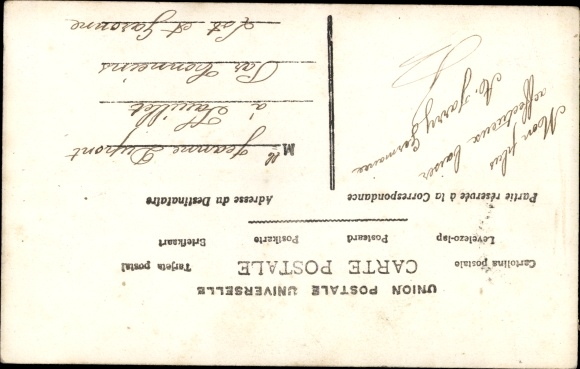 UNION POSTALE UNIVERSELLE
CARTE POSTALE
Cartolina postale
Tarjeta postal
Levelezo-lap
Postcard
Postkarte
Briefkaart
Partie réservée à la Correspondance
Adresse du Destinataire
Mon plus
affectueux baiser
A. Jarry Germaine
Mlle Jeanne Dupont
à Fauillet
Par Tonneins
Lot et Garonne